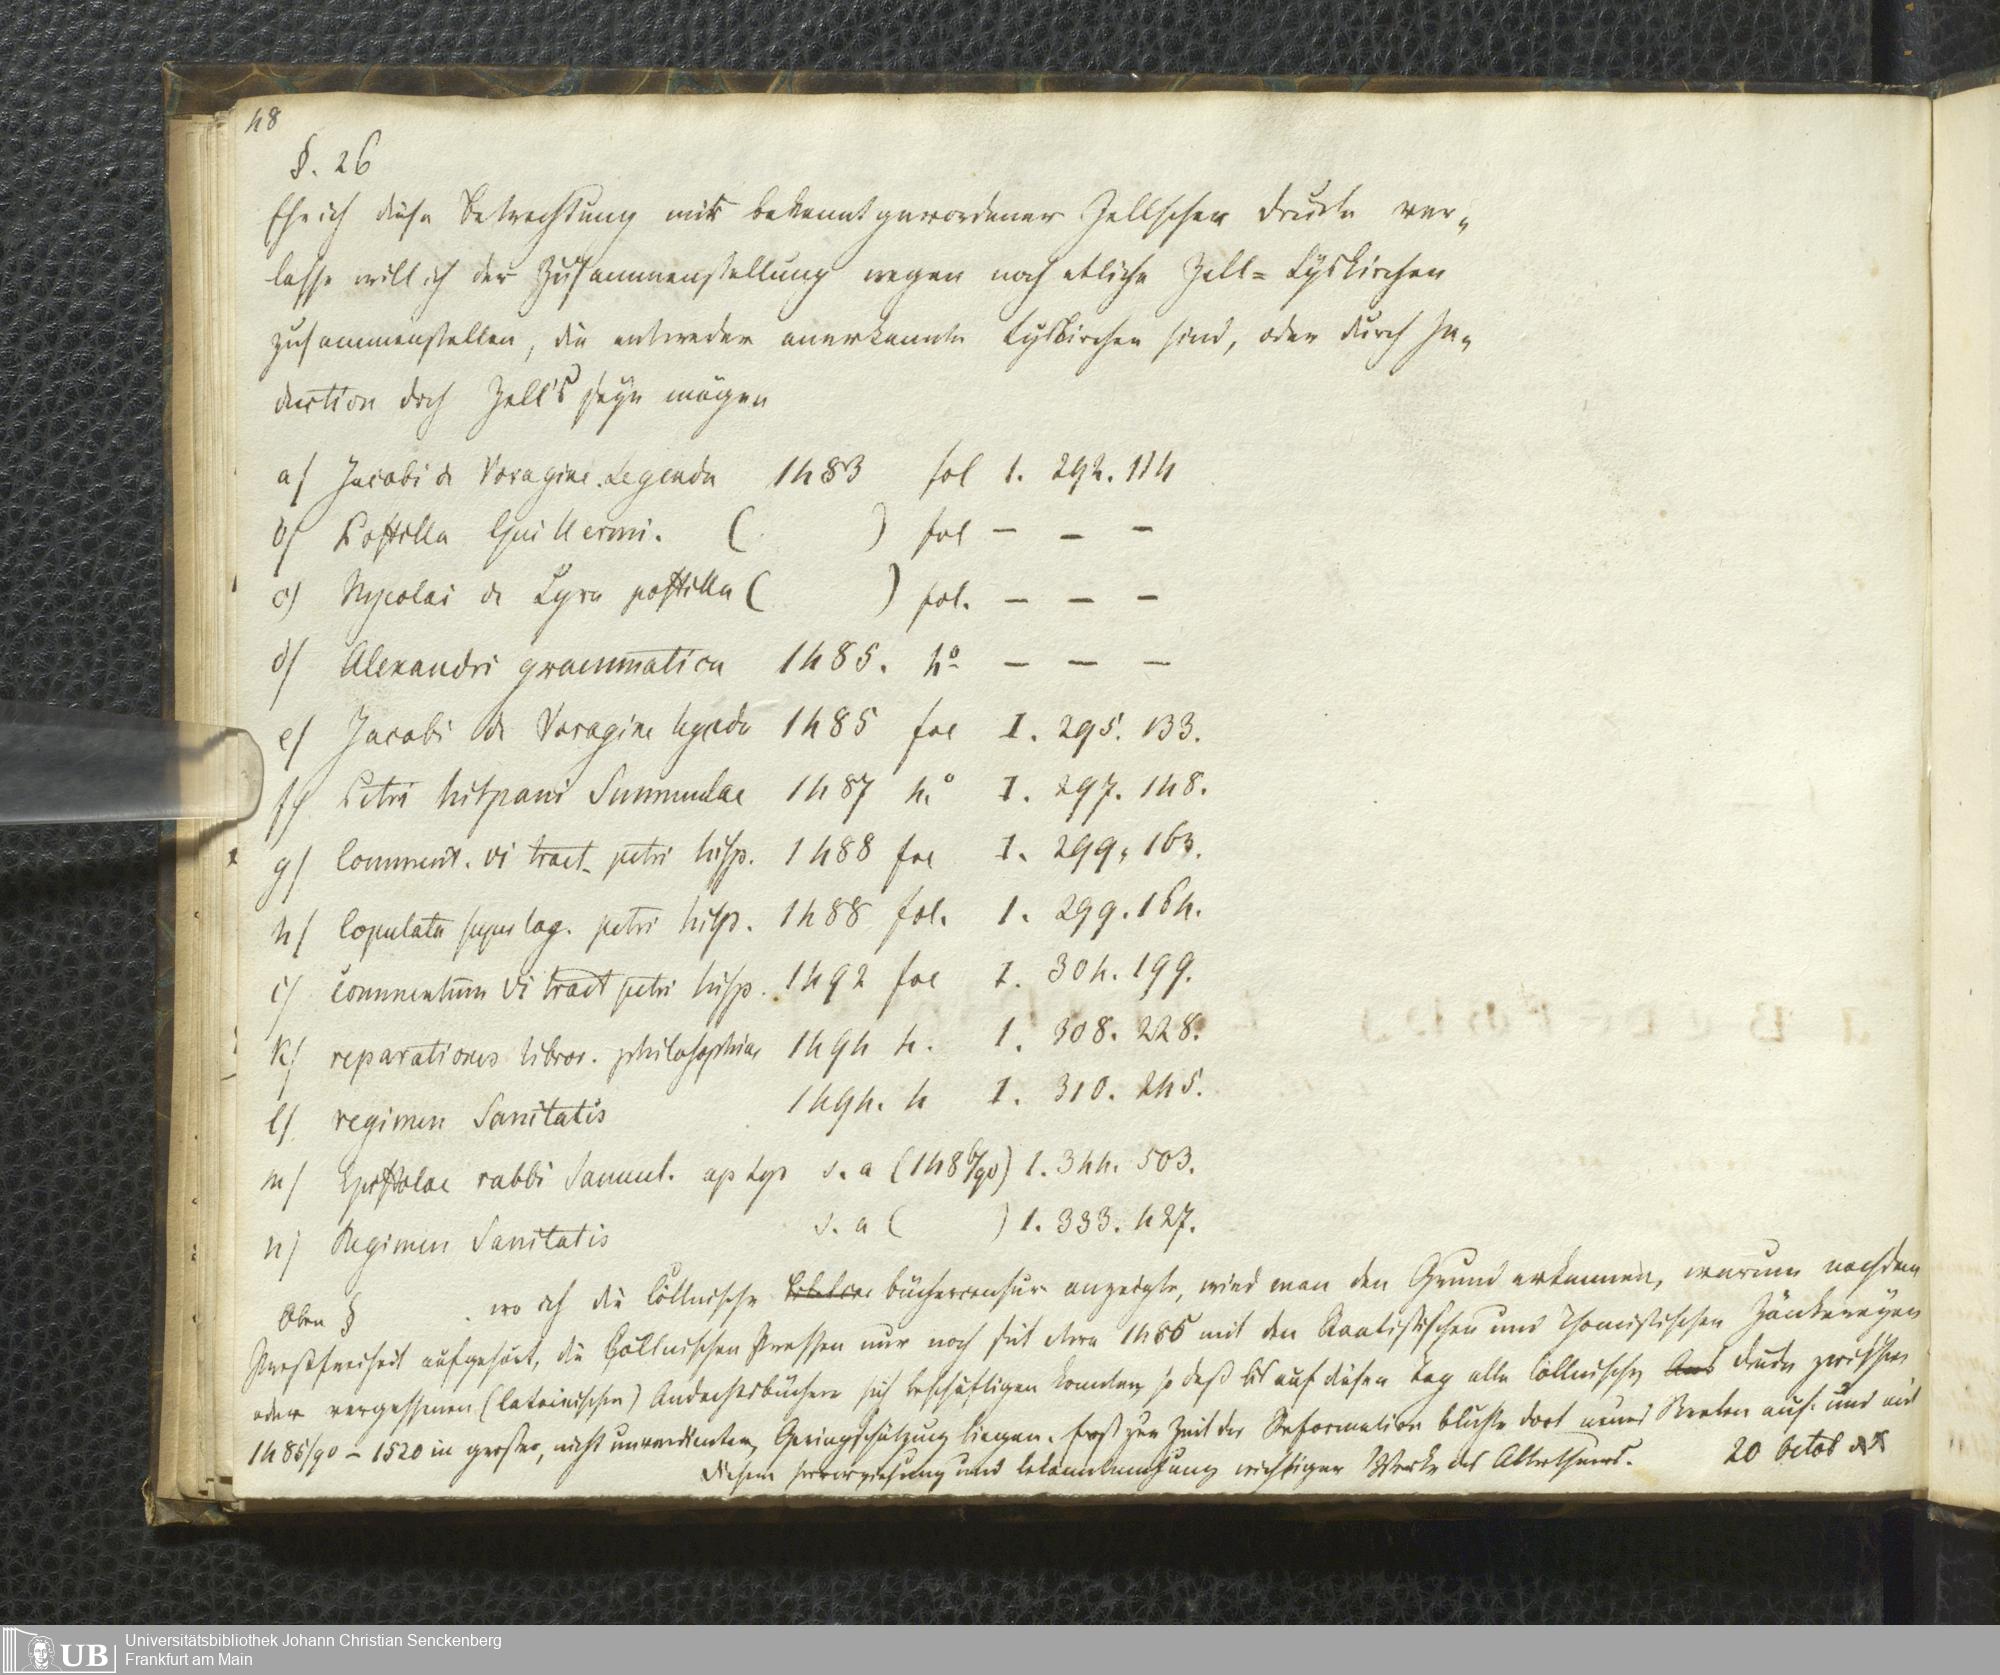 48
§. 26
Ehe ich diese Betrachtung mir bekannt gewordener Zellscher Drucke ver-
lasse will ich der Zusammenstellung wegen noch etliche Zell= Lyskirchen
zusammenstellen, die entweder anerkannte Lyskirchen sind, oder durch In-
duction doch Zell's seyn mögen
a) Jacobi de Voragine Legenda 1483 fol 1. 292. 114
b) Postilla Guillermi. ( ) fol — — —
c) Nycolai de Lyra postilla ( ) fol. — — —
d) Alexandri grammatica 1485. 4o — — —
e) Jacobi de Voragine legenda 1485 fol I. 295. 133.
f) Petri hispani Summulae 1487 4.o I. 297. 148.
g) Comment. vi tract. petri hisp. 1488 fol I. 299. 163.
h) Copulata super log. petri hisp. 1488 fol. 1. 299. 164.
i) commentum vi tract petri hisp. 1492 fol I. 304. 199.
k) reparationes libror. philosophiae 1494 4. 1. 308. 228.
l) regimen Sanitatis 1494. 4 I. 310. 245.
m) Epistolae rabbi Samuel. ap Lys s. a (1486/90) 1. 344. 503.
n) Regimen Sanitatis s. a ( ) 1. 333. 427.
Oben § wo ich die Cöllnische büchercensur anzeigte, wird man den Grund erkennen, warum nachdem
Preßfreiheit aufgehört, die Cöllnischen Pressen nur noch seit etwa 1486 mit den Realistischen und Thomistischen Zänkereyen
oder vergessenen (lateinischen) Andachtsbüchern sich beschäftigen konnten, so daß bis auf diesen Tag alle Cöllnische Drucke zwischen
1485/90 – 1520 in großer, nicht unverdienten, Geringschätzung liegen. Erst zur Zeit der Reformation blühte dort neues Streben auf: und mit
diesem hervorziehung und bekanntmachung wichtiger Werke des Alterthums. 20 octob
Universitätsbibliothek Johann Christian Senckenberg
UB
Frankfurt am Main